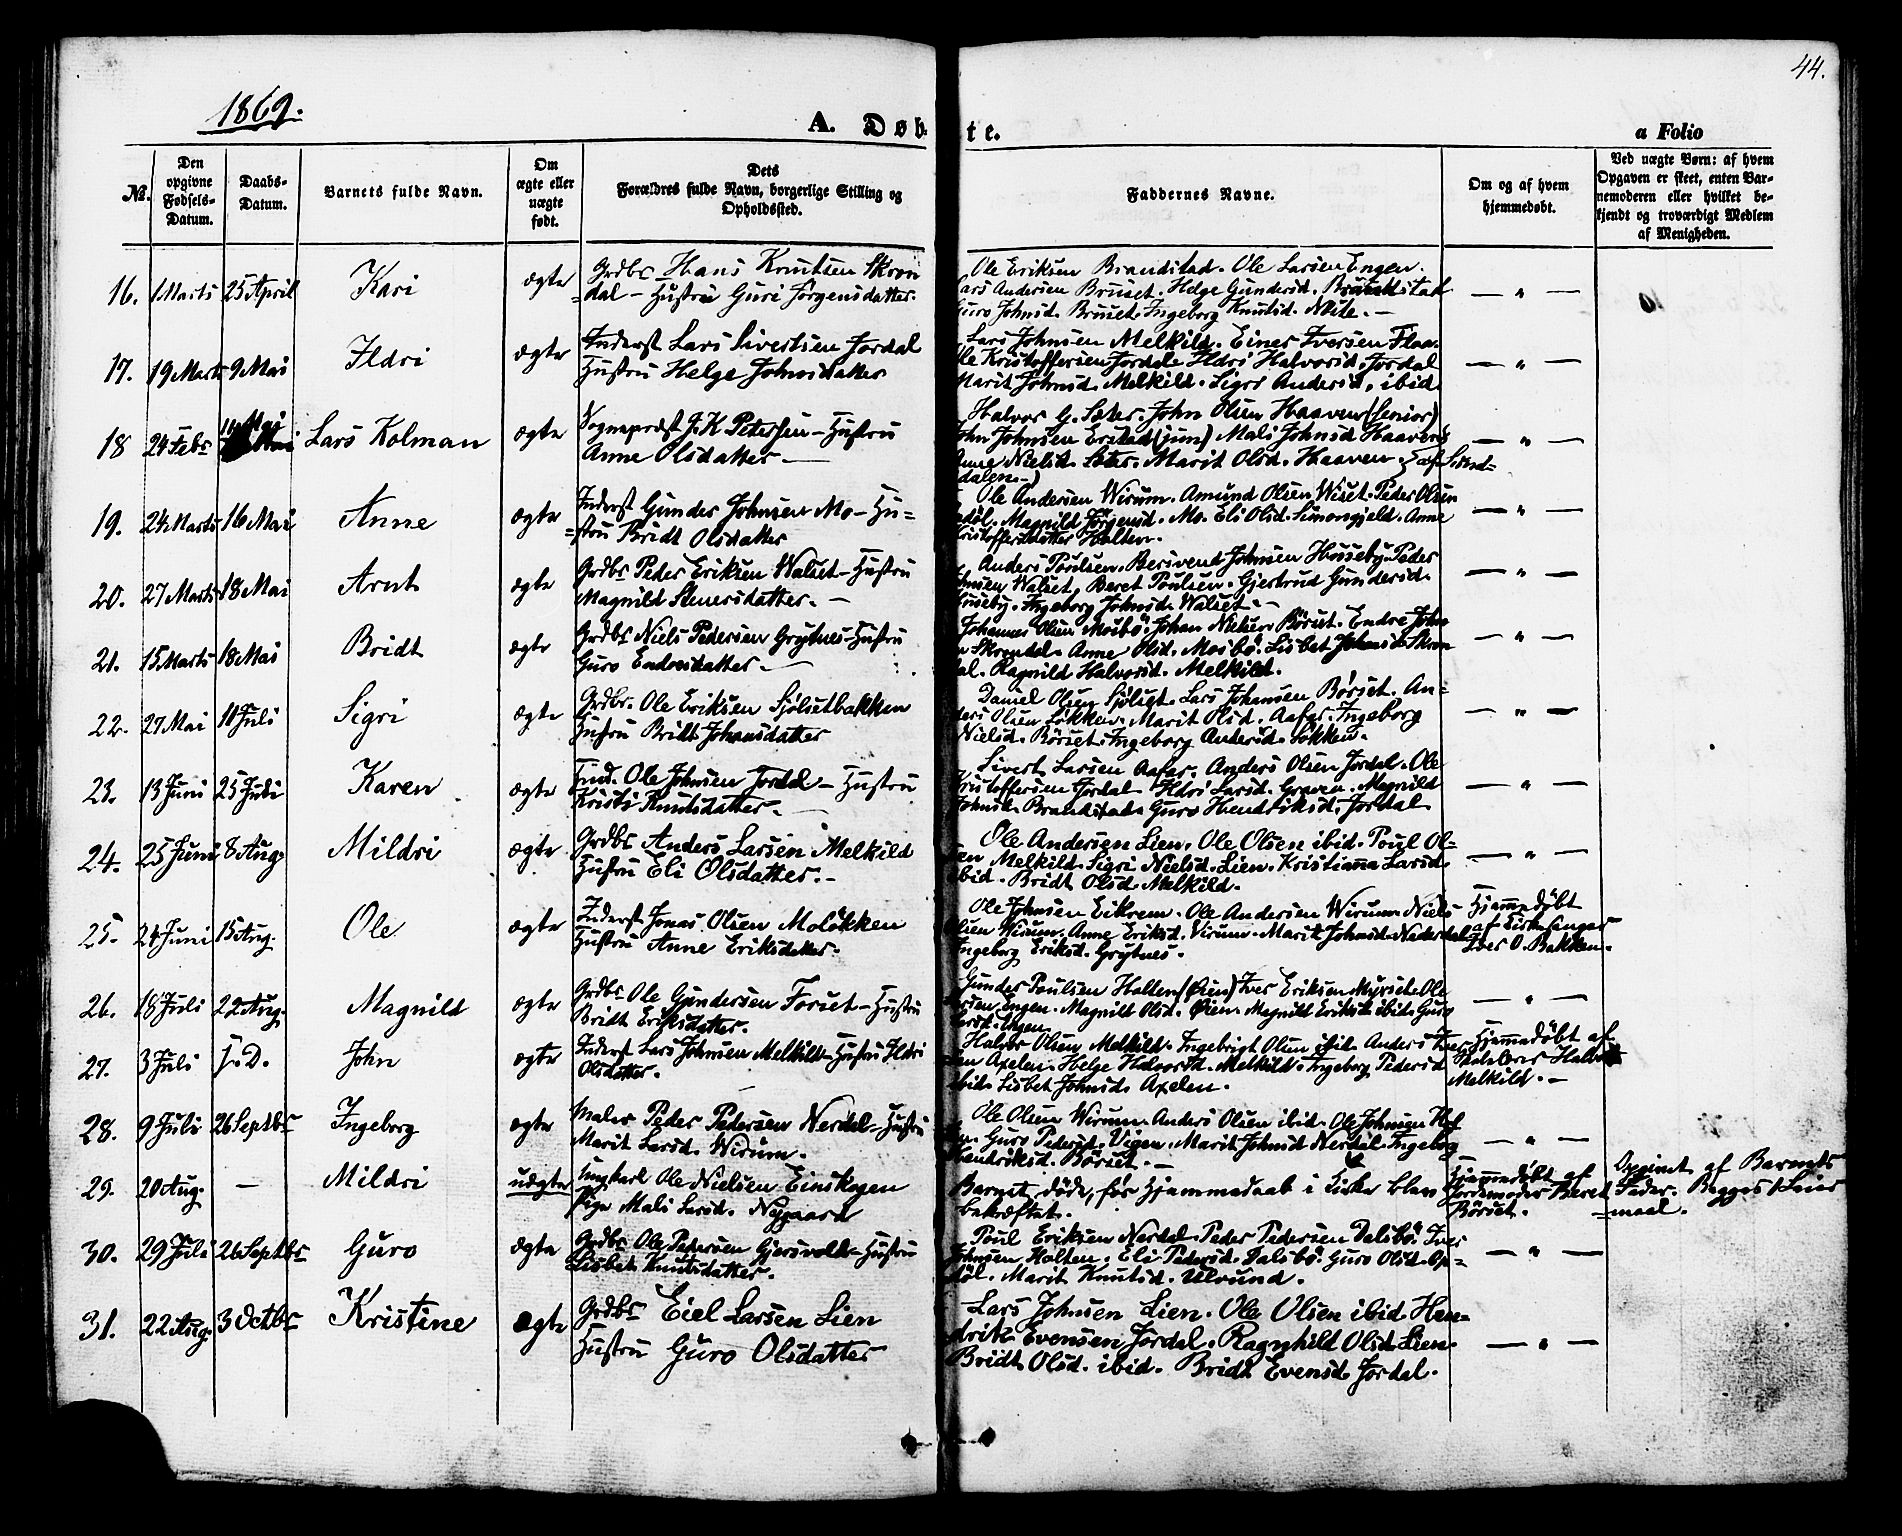 44.
1869.
A. Døb-
te.
a Folio
№.
Den opgivne Fødsels-Datum.
Daabs-Datum.
Barnets fulde Navn.
Om ægte eller uægte født.
Dets Forældres fulde Navn, borgerlige Stilling og Opholdssted.
Faddernes Navne.
Om og af hvem hjemmedøbt.
Ved uægte Børn: af hvem Opgaven er skeet, enten Barnemoderen eller hvilket bekjendt og troværdigt Medlem af Menigheden.
16. 1 Marts 25 April Kari ægte Grdbr Hans Knutsen Skron
dal – Hustru Guri Jørgensdatter.
Ole Eriksen Brandstad. Ole Larsen Engen.
Lars Andersen Bruset. Helge Gundersd. Brandstad
Guro Johnsd. Bruset. Ingeborg Knutsd. – — " —
17. 19 Marts 9 Mai Ildri ægte Inderst Lars Sivertsen Jordal
Hustru Helge Johnsdatter
Lars Johnsen Melkild. Einer Iversen Flaa.
Ole Kristoffersen Jordal. Ildri Halvorsd. Jordal
Marit Johnsd. Melkild. Sigri Andersd. ibid. — " —
18 24 Febr Mai Lars Kolman ægte Sognepræst J. K. Petersen – Hustru
Anne Olsdatter —
Halvor G. Sæter. John Olsen Haaven (senior)
John Johnsen (jun) Mali Johnsd. Haaven
Anne Nielsd. Sæter. Marit Olsd. Haaven. — " —
19. 24 Marts 16 Mai Anne ægte Inderst Gunder Johnsen Mo – Hu=
=stru Bridt Olsdatter
Ole Andersen Wirum. Amund Olsen Wiset. Peder Olsen
Magnild Jørgensd. Mo. Eli Olsd. Simongjeld. Anne
Kristoffersdatter Halten. — " —
20. 27 Marts 18 Mai Arnt ægte Grdbr Peder Eriksen Walset – Hustru
Magnild Steuersdatter. —
Anders Poulsen. Johnsen Huseby. Peder
Johnsen Walset. Beret Poulsen. Gjertrud Gundersd.
Huseby. Ingeborg Johnsd. Walset. — — " —
21. 15 Marts 18 Mai Bridt ægte Grdbr Niels Pedersen Grytnes – Hustru
Guro Endresdatter. —
Johannes Olsen Mosbö. Johan Nielsen Börset. Endre John
Skrondal. Anne Olsd. Mosbö. Lisbet Johnsd. Skron
dal. Ragnild Halvorsd. Melkild. — " —
22. 27 Mai 11 Juli Sigri ægte Grdbr. Ole Eriksen Sjölsetbakken
Hustru Bridt Johansdatter
Daniel Olsen Sjølset. Lars Johansen Börset. An=
ders Olsen Løkken. Marit Olsd. Aafar. Ingeborg
Nielsd. Börset. Ingeborg Andersd. Løkken. — " —
23. 13 Juni 25 Juli Karen ægte Ind. Ole Johnsen Jordal – Hustru
Kristi Knutsdatter. —
Sivert Larsen Aafar. Anders Olsen Jordal. Ole
Kristoffersen Jordal. Ildri Larsd. Graven. Magnild
Johnsd. Brandstad. Guro Hendriksd. Jordal — " —
24. 25 Juni 8 Aug. Mildri ægte Grdbr Anders Larsen Melkild
Hustru Eli Olsdatter. –
Ole Andersen Lien. Ole Olsen ibid. Poul Ol=
sen Melkild. Sigri Nielsd. Lien. Kristiana Larsd.
ibid. Bridt Olsd. Melkild. — " —
25. 24 Juni 15 Aug. Ole ægte Inderst Jonas Olsen Moløkken
Hustru Anne Eriksdatter.
Ole Johnsen Eikrem. Ole Andersen Wirum. Niels
Olsen Wirum. Anne Eriksd. Virum. Marit Johnsd.
Ingeborg Eriksd. Grytnes.
Hjemmedøbt
af Kirkesanger
Iver O. Bakken.
26. 18 Juli 22 Aug. Magnild ægte Grdbr Ole Gundersen Forset – Hustru
Bridt Eriksdatter.
Gunder Poulsen Halten (Øien) Iver Eriksen Myrset. Ole
Larsen Engen. Magnild Olsd. Øien. Magnild Eriksd. ibid. Guro
Larsd. Engen — " —
27. 3 Juli s. D. John ægte Inderst Lars Johnsen Melkild – Hustru Ildri
Olsdatter.
Halvor Olsen Melkild. Ingebrigt Olsen ibid. Anders Iver
sen Axelen. Helge Halvorsd. Melkild. Ingeborg Pedersd
ibid. Lisbet Johnsd. Axelen.
Hjemmedøbt af
Halvor
Melkild. –
28. 9 Juli 26 Septbr Ingeborg ægte Maler Peder Pedersen Nerdal – Hustru
Marit Larsd. Wirum.
Ole Olsen Wirum. Anders Olsen ibid. Ole Johnsen
Guro Pedersd. Vigen. Marit Johnsd. Nerdal. Ingeborg
Hendriksd. Börset. — — " —
29. 20 Aug. — Mildri uægte Ungkarl Ole Nielsen Einskagen
Pige Mali Larsd. Nygaard
Barnet døde, før Hjemmedaab i Kirke blev
bekræftet.
Hjemmedøbt af
Jordemoder Beret
Börset.
Opgivet af Barnets
Fader. Begges 1 Leier
=maal.
30. 29 Juli 26 Septbr Guro ægte Grdbr Ole Pedersen Gjersvold – Hustru
Lisbet Knutsdatter.
Poul Eriksen Nerdal. Peder Pedersen Dalsbö. Iver
Johnsen Halten. Eli Pedersd. Dalsbö. Guro Olsd. Op=
döl. Marit Knutsd. Ulvund. — " —
31. 22 Aug. 3 Octbr Kristine ægte Grdbr Eiel Larsen Lien
Hustru Guro Olsdatter
Lars Johnsen Lien. Ole Olsen ibid. Hen=
drik Evensen Jordal. Ragnhild Olsd. Lien.
Bridt Olsd. ibid. Bridt Evensd. Jordal. — " —